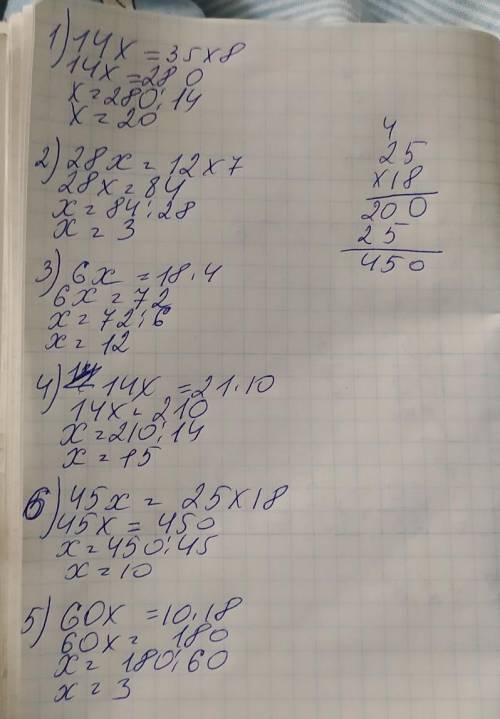 1) 14x = 35x8
14x = 280
x = 280:14
x = 20
2) 28x = 12x7
28x = 84
x = 84:28
x = 3
3) 6x = 18·4
6x = 72
x = 72:6
x = 12
4) 14x = 21·10
14x = 210
x = 210:14
x = 15
6) 45x = 25x18
45x = 450
x = 450:45
x = 10
5) 60x = 10·18
60x = 180
x = 180:60
x = 3
4
25
x18
200
25
450